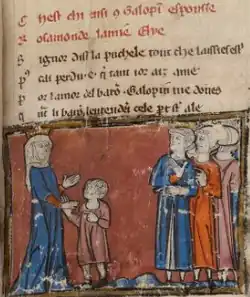 C hest chi ensi q̄ Galopin̄ espouse
Rosamonde lamie Elye
S ignor dist la puchele tout che laissies est
p9 cai perdu e q̄ tant ior ai ame
p or lamor del barō Galopin me dones
q̄ li barō lentendēt cele pt st ale